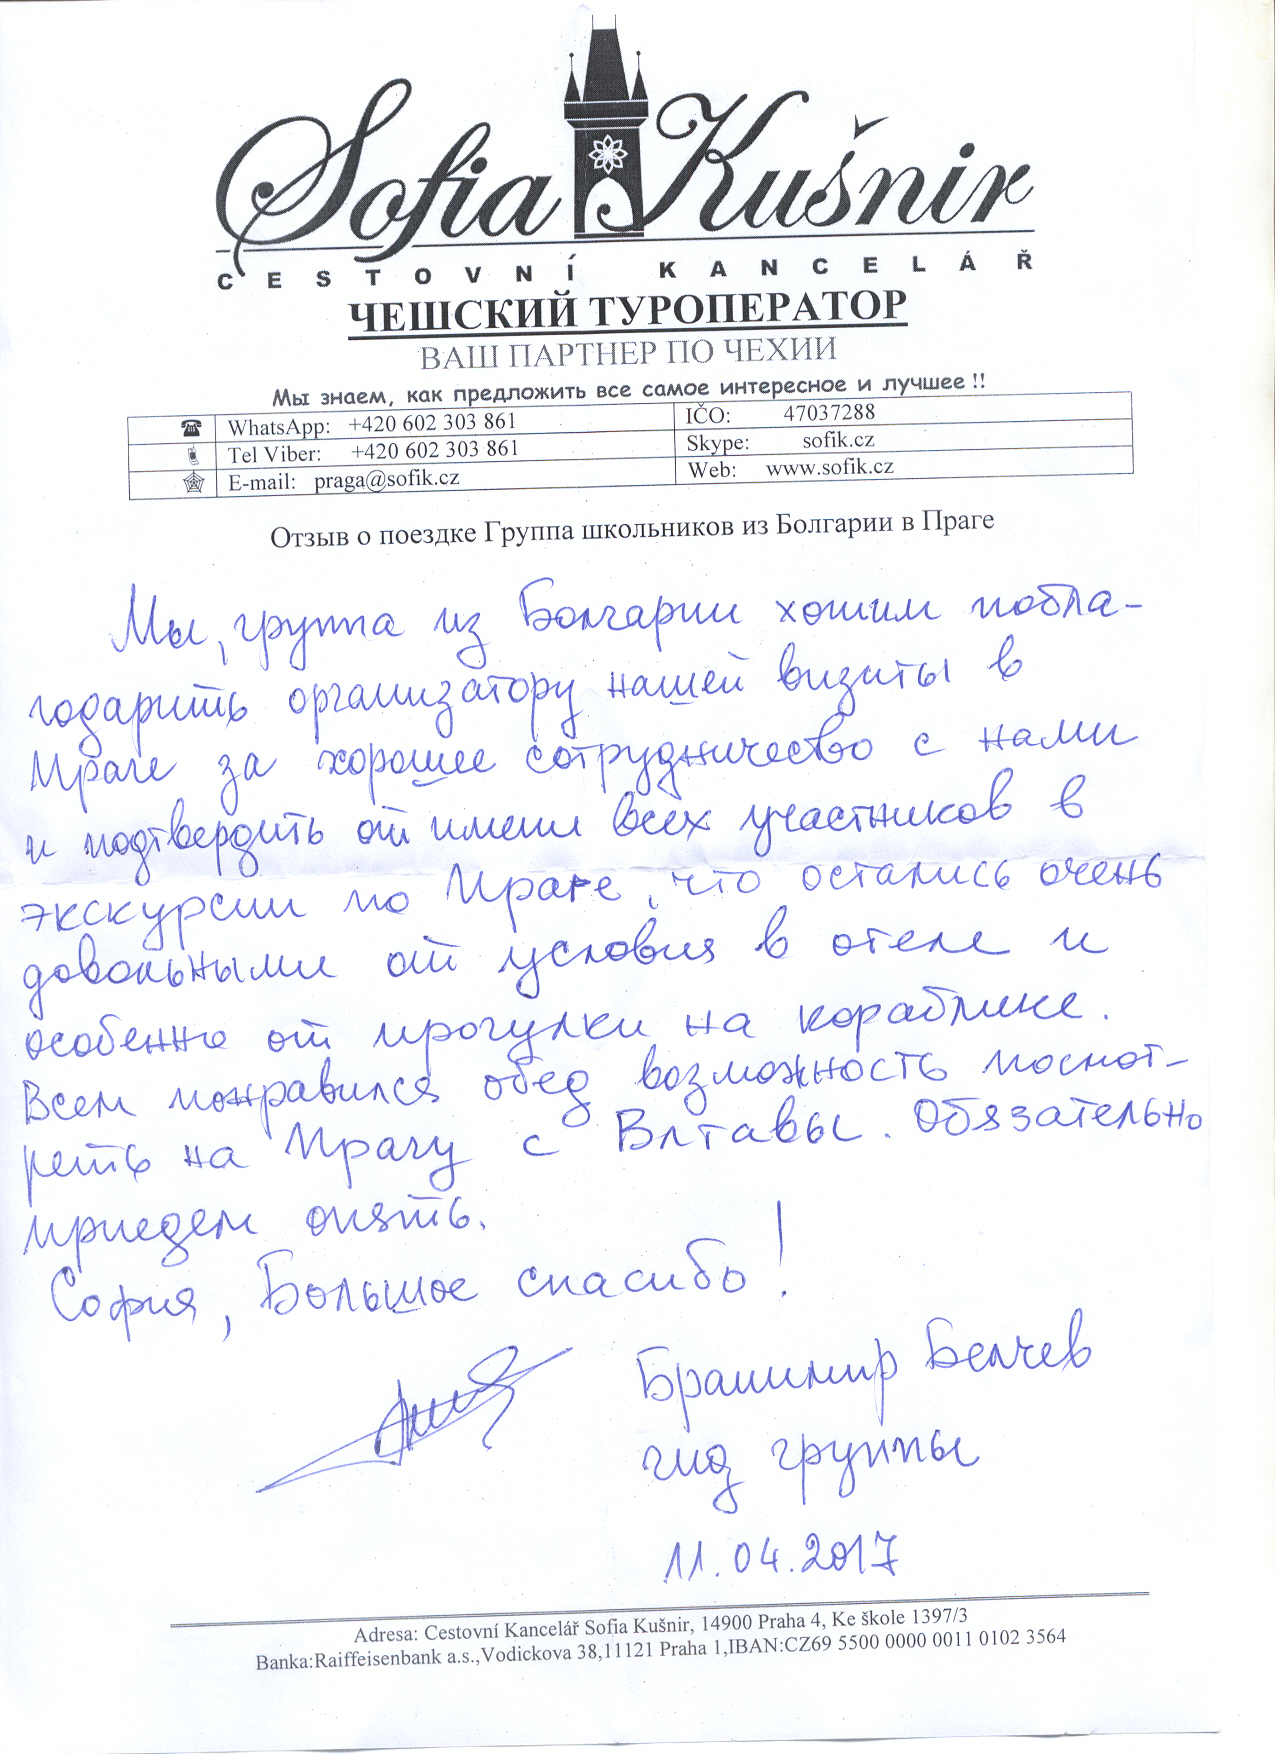 Sofia Kušnir
CESTOVNÍ KANCELÁŘ
ЧЕШСКИЙ ТУРОПЕРАТОР
ВАШ ПАРТНЕР ПО ЧЕХИИ
Мы знаем, как предложить все самое интересное и лучшее !!
WhatsApp: +420 602 303 861 IČO: 47037288
Tel Viber: +420 602 303 861 Skype: sofik.cz
E-mail: praga@sofik.cz Web: www.sofik.cz
Отзыв о поездке Группа школьников из Болгарии в Праге
Мы, группа из Болгарии хотим побла-
годарить организатору нашей визиты в
Праге за хорошее сотрудничество с нами
и подтвердить от имени всех участников в
экскурсии по Праге, что остались очень
довольными от условия в отеле и
особенно от прогулки на кораблике.
Всем понравился обед возможность посмот-
реть на Прагу с Влтавы. Обязательно
приедем опять.
София, Большое спасибо!
Бранимир Белчев
гид группы
11.04.2017
Adresa: Cestovní Kancelář Sofia Kušnir, 14900 Praha 4, Ke škole 1397/3
Banka:Raiffeisenbank a.s.,Vodickova 38,11121 Praha 1,IBAN:CZ69 5500 0000 0011 0102 3564